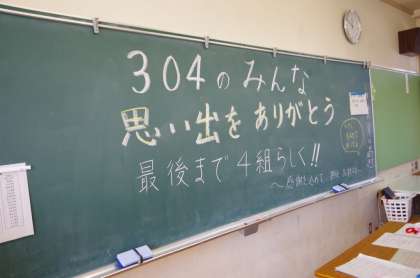 304のみんな
思い出をありがとう
最後まで4組らしく!!
～感謝を込めて